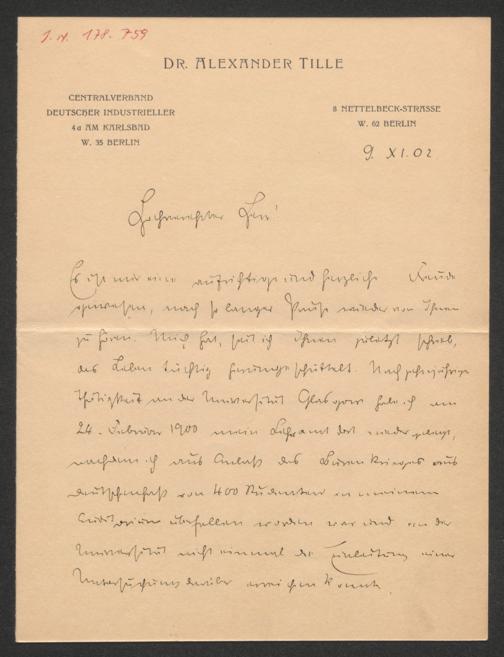 J. N. 178.759
DR. ALEXANDER TILLE
CENTRALVERBAND
DEUTSCHER INDUSTRIELLER
4a AM KARLSBAD
W. 35 BERLIN
8 NETTELBECK-STRASSE
W. 62 BERLIN
9. XI. 02
Hochverehrter Herr!
Es ist mir eine aufrichtige und herzliche Freude
gewesen, nach so langer Pause wieder von Ihnen
zu hören. Mich hat, seit ich Ihnen zuletzt schrieb,
das Leben tüchtig herumgeschüttelt. Nach zehnjähriger
Thätigkeit an der Universität Glasgow habe ich am
24. Februar 1900 mein Lehramt dort niedergelegt,
nachdem ich aus Anlass des Burenkrieges aus
Deutschenhass von 400 Studenten in meinem
Auditorium überfallen worden war und von der
Universität nicht einmal die Einleitung einer
Untersuchung darüber erreichen konnte.